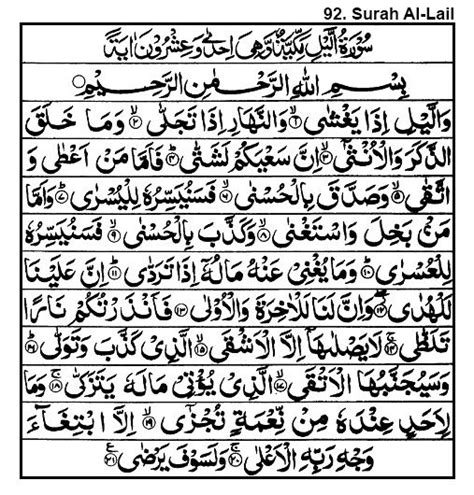 92. Surah Al-Lail
سُوْرَةُ الَّيْلِ مَكِّيَّةٌ وَّهِيَ اِحْدٰى وَعِشْرُوْنَ اٰيَةً
بِسْمِ اللّٰهِ الرَّحْمٰنِ الرَّحِيْمِ
وَالَّيْلِ اِذَا يَغْشٰى ۙ﴿۱﴾ وَالنَّهَارِ اِذَا تَجَلّٰى ۙ﴿۲﴾ وَمَا خَلَقَ
الذَّكَرَ وَالْاُنْثٰٓى ۙ﴿۳﴾ اِنَّ سَعْيَكُمْ لَشَتّٰى ؕ﴿۴﴾ فَاَمَّا مَنْ اَعْطٰى وَ
اتَّقٰى ۙ﴿۵﴾ وَصَدَّقَ بِالْحُسْنٰى ۙ﴿۶﴾ فَسَنُيَسِّرُهٗ لِلْيُسْرٰى ؕ﴿۷﴾ وَاَمَّا
مَنْۢ بَخِلَ وَاسْتَغْنٰى ۙ﴿۸﴾ وَكَذَّبَ بِالْحُسْنٰى ۙ﴿۹﴾ فَسَنُيَسِّرُهٗ
لِلْعُسْرٰى ؕ﴿۱۰﴾ وَمَا يُغْنِيْ عَنْهُ مَالُهٗٓ اِذَا تَرَدّٰى ؕ﴿۱۱﴾ اِنَّ عَلَيْنَا
لَلْهُدٰى ۖ﴿۱۲﴾ وَاِنَّ لَنَا لَلْاٰخِرَةَ وَالْاُوْلٰى ﴿۱۳﴾ فَاَنْذَرْتُكُمْ نَارًا
تَلَظّٰى ۚ﴿۱۴﴾ لَا يَصْلٰىهَآ اِلَّا الْاَشْقَى ۙ﴿۱۵﴾ الَّذِيْ كَذَّبَ وَتَوَلّٰى ؕ﴿۱۶﴾
وَسَيُجَنَّبُهَا الْاَتْقَى ۙ﴿۱۷﴾ الَّذِيْ يُؤْتِيْ مَالَهٗ يَتَزَكّٰى ۚ﴿۱۸﴾ وَمَا
لِاَحَدٍ عِنْدَهٗ مِنْ نِّعْمَةٍ تُجْزٰٓى ۙ﴿۱۹﴾ اِلَّا ابْتِغَآءَ
وَجْهِ رَبِّهِ الْاَعْلٰى ۚ﴿۲۰﴾ وَلَسَوْفَ يَرْضٰى ﴿۲۱﴾